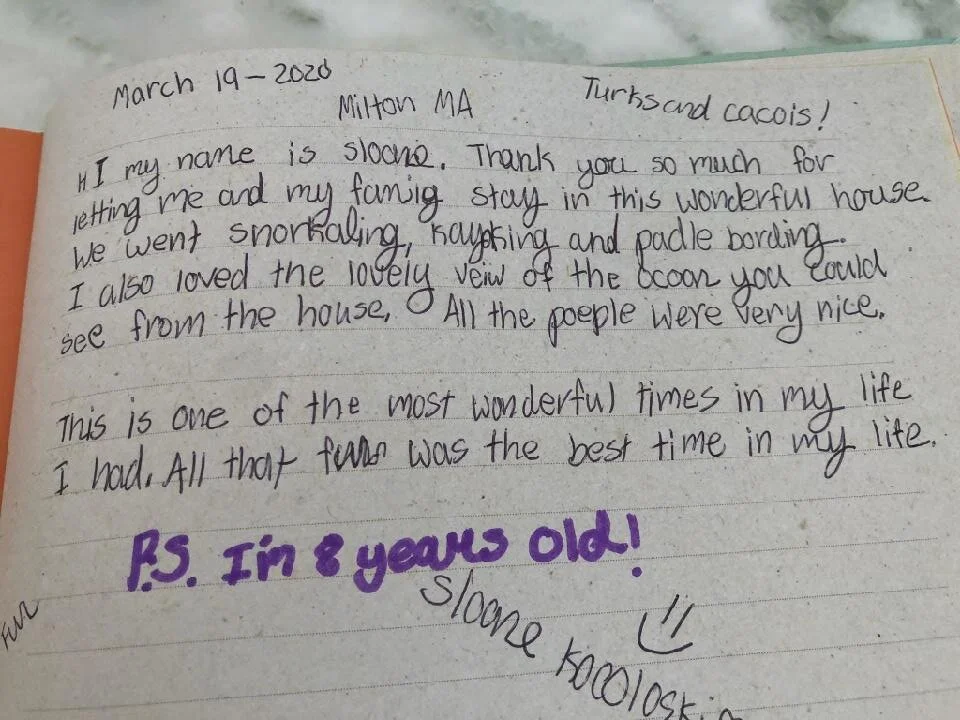 March 19 - 2020
Milton MA
Turks and cacois!
HI my name is sloane. Thank you so much for
letting me and my famig stay in this wonderful house.
We went snorkaling, kayaking and padle bording.
I also loved the lovely veiw of the ocoan you could
see from the house. All the poeple were very nice.
This is one of the most wonderful times in my life
I had. All that fun was the best time in my life.
P.S. I'm 8 years old!
Sloane
Fun